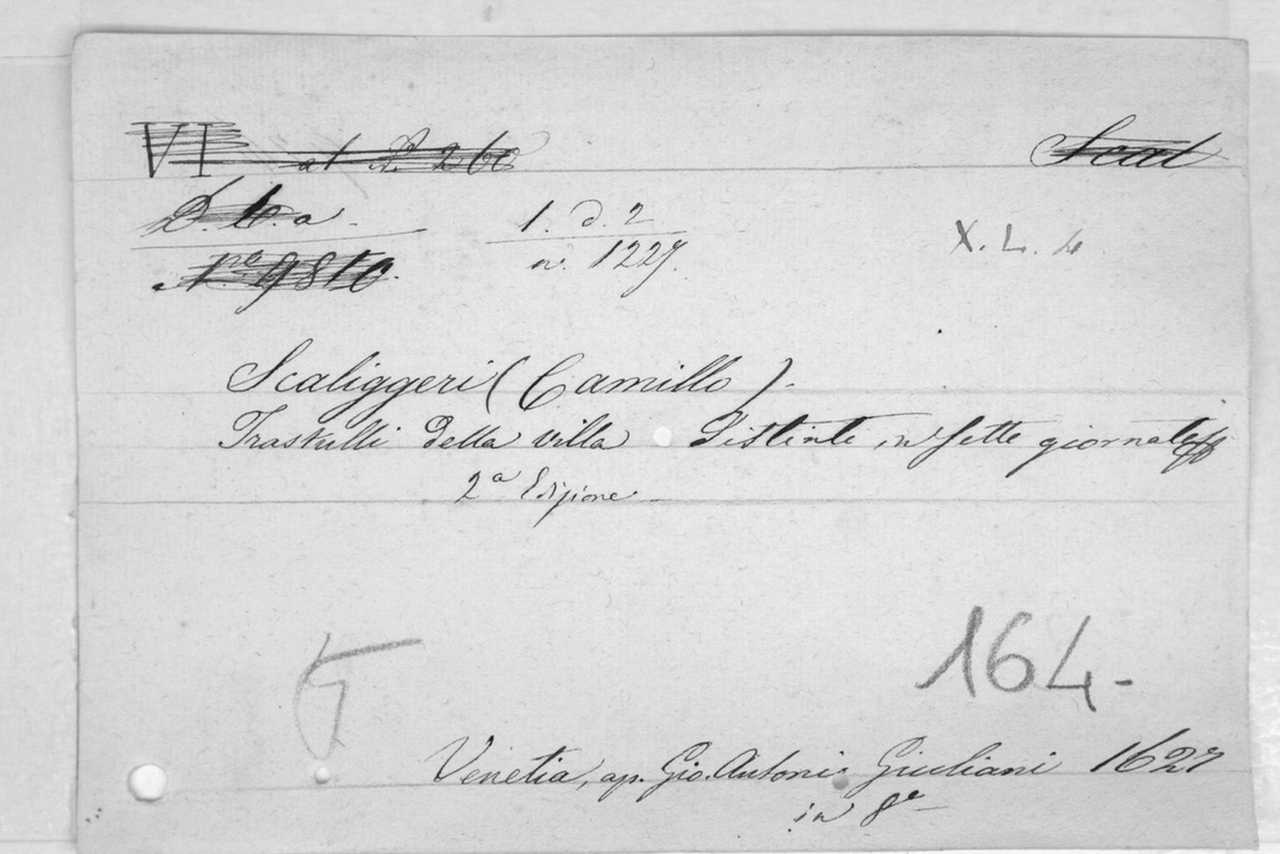 VI at N.º 260 Scal
D. b. a. 1. d. 2
Nº 9810. n. 1227. X. L. 4
Scaliggeri (Camillo).
Trastulli della villa distinte in sette giornate
2ª Edizione
164-
Venetia, ap. Gio. Antoni Giuliani 1627
in 8º